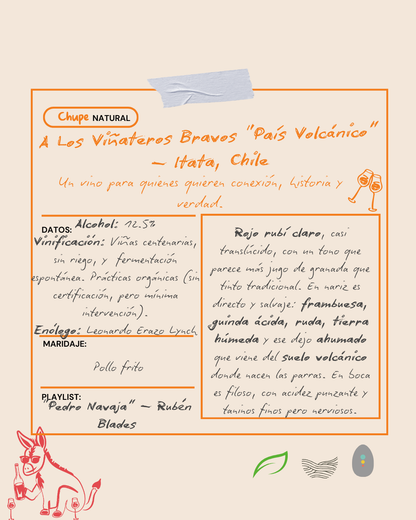 Chupe NATURAL
A Los Viñateros Bravos "País Volcánico"
– Itata, Chile
Un vino para quienes quieren conexión, historia y
verdad.
DATOS: Alcohol: 12.5%
Vinificación: Viñas centenarias,
sin riego, y fermentación
espontánea. Prácticas orgánicas (sin
certificación, pero mínima
intervención).
Enólogo: Leonardo Erazo Lynch
MARIDAJE:
Pollo frito
PLAYLIST:
"Pedro Navaja" – Rubén
Blades
Rojo rubí claro, casi
translúcido, con un tono que
parece más jugo de granada que
tinto tradicional. En nariz es
directo y salvaje: frambuesa,
guinda ácida, ruda, tierra
húmeda y ese dejo ahumado
que viene del suelo volcánico
donde nacen las parras. En boca
es filoso, con acidez punzante y
taninos finos pero nerviosos.